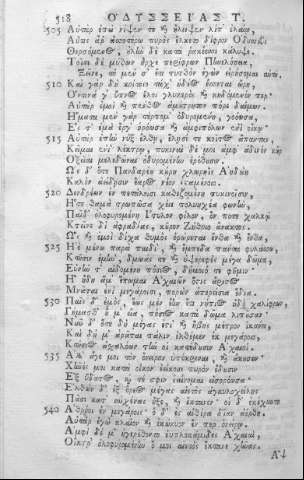 518 ΟΔΥΣΣΕΙΑΣ Τ.
505 Αὐτὰρ ἐπεὶ νίψεν τε καὶ ἤλειψεν λίπ' ἐλαίῳ,
Αὖτις ἄρ' ἀσσοτέρω πυρὸς ἕλκετο δίφρον Ὀδυσσεὺς
Θερσόμενος, οὐλὴν δὲ κατὰ ῥακέεσσι κάλυψε.
Τοῖσι δὲ μύθων ἦρχε περίφρων Πηνελόπεια,
Ξεῖνε, τὸ μέν σ' ἔτι τυτθὸν ἐγὼν εἰρήσομαι αὐτή.
510 Καὶ γὰρ δὴ κοίτοιο τάχ' ἡδέος ἔσσεται ὥρη,
Ὅντινά γ' ὕπνος ἕλοι γλυκερὸς καὶ κηδόμενόν περ.
Αὐτὰρ ἐμοὶ καὶ πένθος ἀμέτρητον πόρε δαίμων.
Ἤματα μὲν γὰρ τέρπομ' ὀδυρομένη, γοόωσα,
Ἔς τ' ἐμὰ ἔργ' ὁρόωσα καὶ ἀμφιπόλων ἐνὶ οἴκῳ.
515 Αὐτὰρ ἐπὴν νὺξ ἔλθῃ, ἕλῃσί τε κοῖτος ἅπαντας,
Κεῖμαι ἐνὶ λέκτρῳ, πυκιναὶ δέ μοι ἀμφ' ἀδινὸν κῆρ
Ὀξεῖαι μελεδῶναι ὀδυρομένην ἐρέθουσιν.
Ὡς δ' ὅτε Πανδαρέου κούρη χλωρηῒς Ἀηδὼν
Καλὸν ἀείδῃσιν ἔαρος νέον ἱσταμένοιο,
520 Δενδρέων ἐν πετάλοισι καθεζομένη πυκινοῖσιν,
Ἥτε θαμὰ τρωπῶσα χέει πολυηχέα φωνὴν,
Παῖδ' ὀλοφυρομένη Ἴτυλον φίλον, ὅν ποτε χαλκῷ
Κτεῖνε δι' ἀφραδίας, κοῦρον Ζήθοιο ἄνακτος·
Ὣς καὶ ἐμοὶ δίχα θυμὸς ὀρώρεται ἔνθα καὶ ἔνθα,
525 Ἠὲ μένω παρὰ παιδὶ, καὶ ἔμπεδα πάντα φυλάσσω,
Κτῆσιν ἐμὴν, δμωάς τε καὶ ὑψερεφὲς μέγα δῶμα,
Εὐνήν τ' αἰδομένη πόσιος, δήμοιό τε φῆμιν·
Ἢ ἤδη ἅμ' ἕπωμαι Ἀχαιῶν ὅστις ἄριστος
Μνᾶται ἐνὶ μεγάροισι, πορὼν ἀπερείσια ἕδνα.
530 Παῖς δ' ἐμὸς, ἕως μὲν ἔην ἔτι νήπιος ἠδὲ χαλίφρων,
Γήμασθ' οὔ μ' εἴα, πόσιος κατὰ δῶμα λιποῦσαν·
Νῦν δ' ὅτε δὴ μέγας ἐστὶ καὶ ἥβης μέτρον ἱκάνει,
Καὶ δή μ' ἀρᾶται πάλιν ἐλθέμεν ἐκ μεγάροιο,
Κτήσιος ἀσχαλόων, τήν οἱ κατέδουσιν Ἀχαιοί.
535 Ἀλλ' ἄγε μοι τὸν ὄνειρον ὑπόκριναι, καὶ ἄκουσον·
Χῆνές μοι κατὰ οἶκον ἐείκοσι πυρὸν ἔδουσιν
Ἐξ ὕδατος, καί τέ σφιν ἰαίνομαι εἰσορόωσα·
Ἐλθὼν δ' ἐξ ὄρεος μέγας αἰετὸς ἀγκυλοχείλης
Πᾶσι κατ' αὐχένας ἦξε, καὶ ἔκτανεν· οἱ δ' ἐκέχυντο
540 Ἀθρόοι ἐν μεγάροις· ὁ δ' ἐς αἰθέρα δῖαν ἀέρθη.
Αὐτὰρ ἐγὼ κλαῖον καὶ ἐκώκυον ἔν περ ὀνείρῳ.
Ἀμφὶ δέ μ' ἠγερέθοντο ἐϋπλοκαμῖδες Ἀχαιαὶ,
Οἴκτρ' ὀλοφυρομένην ὅ μοι αἰετὸς ἔκτανε χῆνας.